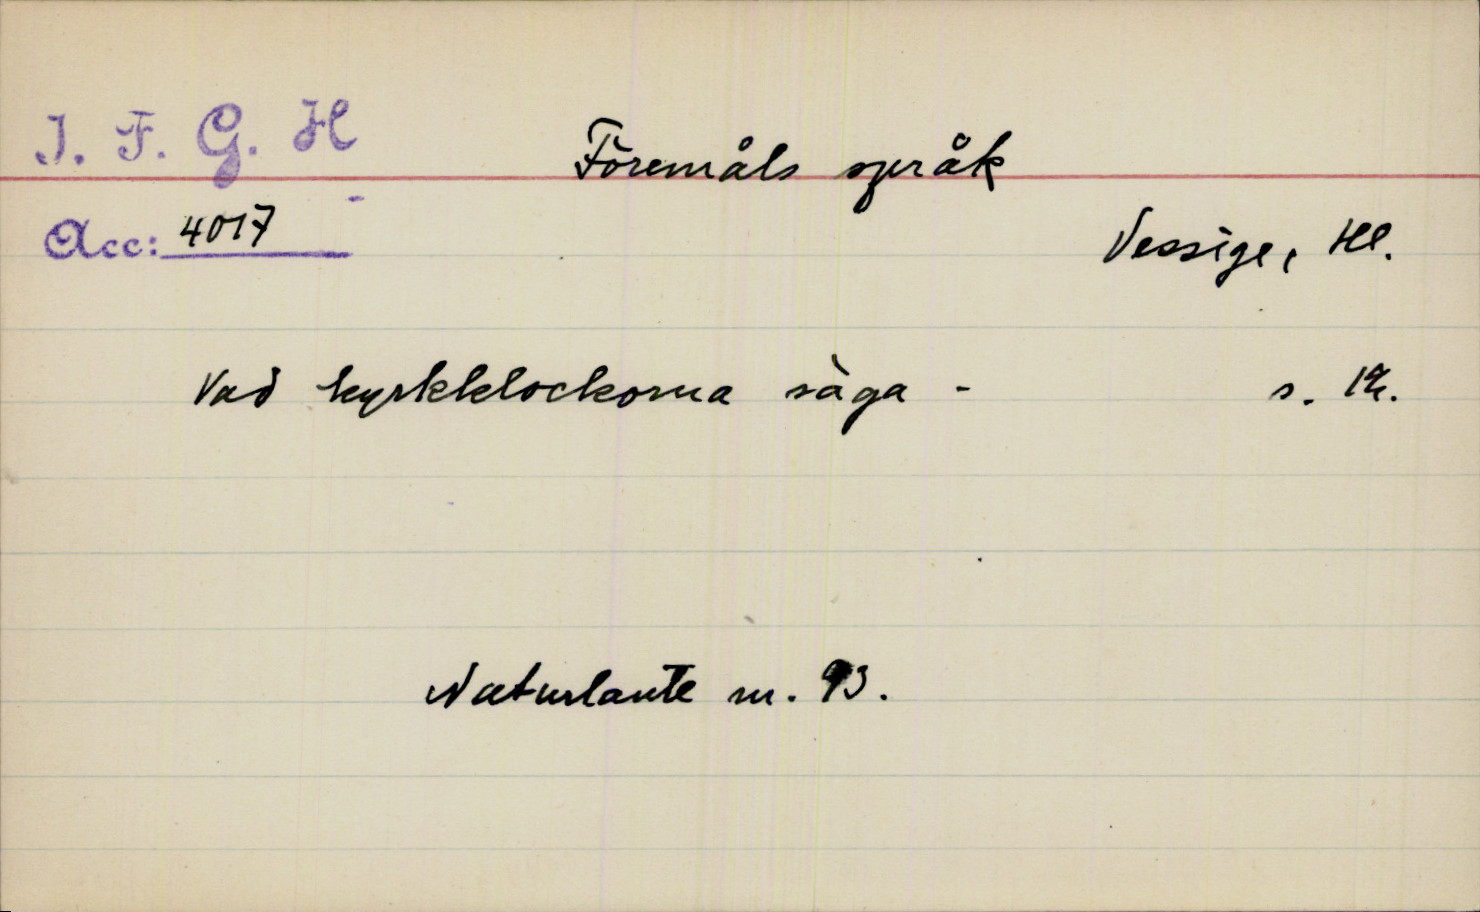 I. F. G. H
Föremåls språk
Acc: 4017
Vessige, Hl.
Vad kyrkklockorna säga -
Naturlaute nr. 93.